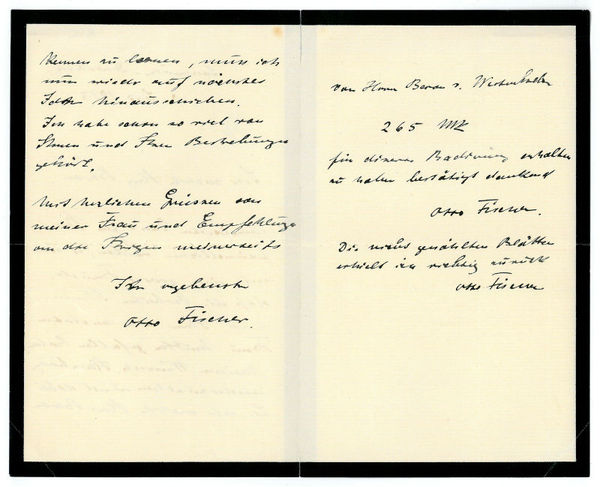 kennen zu lernen, muss ich
nun wieder auf nächstes
Jahr hinausschieben.
Ich habe schon so viel von
Ihnen und Ihren Bestrebungen
gehört.
Mit herzlichen Grüssen von
meiner Frau und Empfehlungen
an die Ihrigen meinerseits
Ihr ergebenster
Otto Fischer.
von Herrn Baron v.
265 Mk
für dieses Radierung erhalten
zu haben bestätigt dankend
Otto Fischer.
Die nicht gewählten Blätter
erhielt ich richtig zurück
Otto Fischer